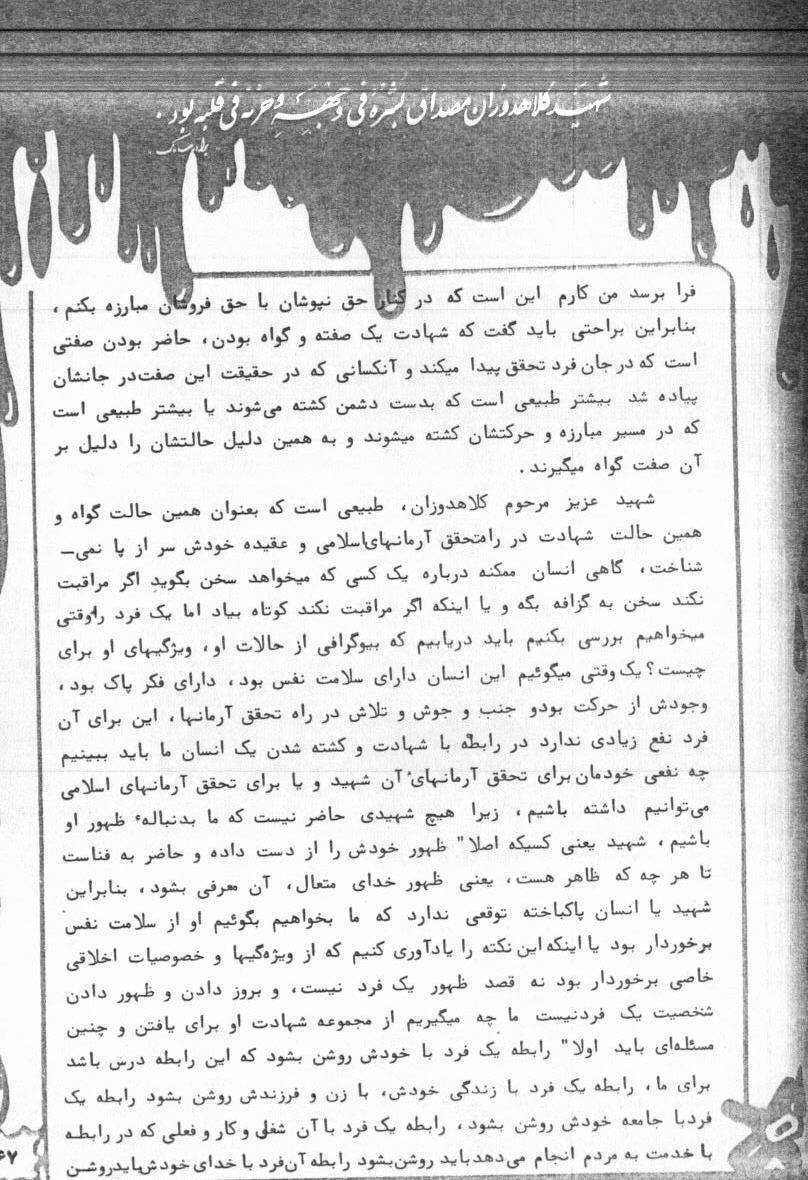 شهید کلاهدوزان مصداق بشره فی وجهه و حزنه فی قلبه بود.
فرا برسد من کارم این است که در کنار حق نپوشان با حق فروشان مبارزه بکنم،
بنابراین براحتی باید گفت که شهادت یک صفته و گواه بودن، حاضر بودن صفتی
است که در جان فرد تحقق پیدا میکند و آنکسانی که در حقیقت این صفت‌در جانشان
پیاده شد بیشتر طبیعی است که بدست دشمن کشته می‌شوند یا بیشتر طبیعی است
که در مسیر مبارزه و حرکتشان کشته میشوند و به همین دلیل حالتشان را دلیل بر
آن صفت گواه میگیرند.
شهید عزیز مرحوم کلاهدوزان، طبیعی است که بعنوان همین حالت گواه و
همین حالت شهادت در راه‌تحقق آرمانهای‌اسلامی و عقیده خودش سر از پا نمی–
شناخت، گاهی انسان ممکنه درباره یک کسی که میخواهد سخن بگوید اگر مراقبت
نکند سخن به گزافه بگه و یا اینکه اگر مراقبت نکند کوتاه بیاد اما یک فرد را‌وقتی
میخواهیم بررسی بکنیم باید دریابیم که بیوگرافی از حالات او، ویژگیهای او برای
چیست؟ یک وقتی میگوئیم این انسان دارای سلامت نفس بود، دارای فکر پاک بود،
وجودش از حرکت بودو جنب و جوش و تلاش در راه تحقق آرمانها، این برای آن
فرد نفع زیادی ندارد در رابطه با شهادت و کشته شدن یک انسان ما باید ببینیم
چه نفعی خودمان برای تحقق آرمانهای آن شهید و یا برای تحقق آرمانهای اسلامی
می‌توانیم داشته باشیم، زیرا هیچ شهیدی حاضر نیست که ما بدنبالهٔ ظهور او
باشیم، شهید یعنی کسیکه اصلا" ظهور خودش را از دست داده و حاضر به فناست
تا هر چه که ظاهر هست، یعنی ظهور خدای متعال، آن معرفی بشود، بنابراین
شهید یا انسان پاکباخته توقعی ندارد که ما بخواهیم بگوئیم او از سلامت نفس
برخوردار بود یا اینکه این نکته را یادآوری کنیم که از ویژه‌گیها و خصوصیات اخلاقی
خاصی برخوردار بود نه قصد ظهور یک فرد نیست، و بروز دادن و ظهور دادن
شخصیت یک فردنیست ما چه میگیریم از مجموعه شهادت او برای یافتن و چنین
مسئله‌ای باید اولا" رابطه یک فرد با خودش روشن بشود که این رابطه درس باشد
برای ما، رابطه یک فرد با زندگی خودش، با زن و فرزندش روشن بشود رابطه یک
فردبا جامعه خودش روشن بشود، رابطه یک فرد با آن شغلی و کار و فعلی که در رابطه
با خدمت به مردم انجام می‌دهد باید روشن‌بشود رابطه آن‌فرد با خدای خودش‌بایدروشن